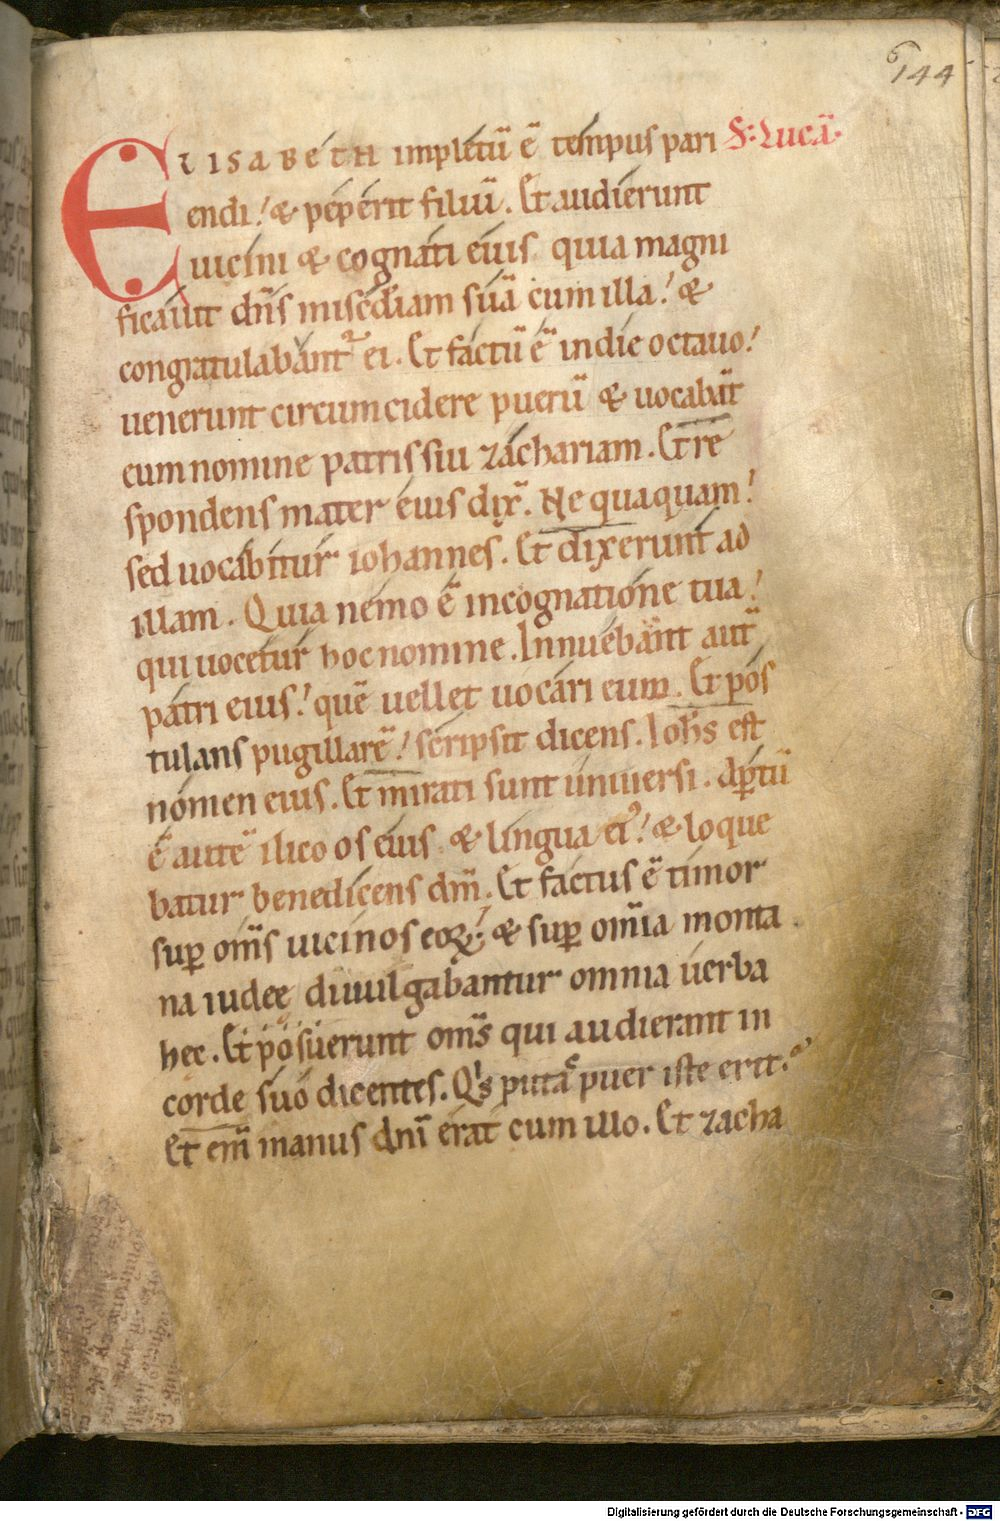 144
ELISABETH impletū ē tempus pari S: Lucā.
endi! & peperit filiū. Et audierunt
uicini & cognati eius quia magni
ficauit dn̄s misc̄diam suā cum illa! &
congratulabant᷑ ei. Et factū ē in die octauo!
uenerunt circumcidere puerū & uocabāt
eum nomine patris sui zachariam. Et re
spondens mater eius dix̄. Ne quaquam!
sed uocabitur iohannes. Et dixerunt ad
illam. Quia nemo ē in cognatione tua!
qui uocetur hoc nomine. Innuebant aut̄
patri eius! quē uellet uocari eum. Et pos
tulans pugillarē! scripsit dicens. Ioh̄s est
nomen eius. Et mirati sunt uniuersi. Aꝑtū
ē autē ilico os eius & lingua ei᾿! & loque
batur benedicens dm̄. Et factus ē timor
suꝑ om̄s uicinos eoꝝ! & suꝑ om̄ia monta
na iudeę diuulgabantur omnia uerba
hec. Et posuerunt om̄s qui audierant in
corde suo dicentes. Qis putas puer iste erit?
Et eni̅ manus dn̄i erat cum illo. Et zacha
Digitalisierung gefördert durch die Deutsche Forschungsgemeinschaft - DFG